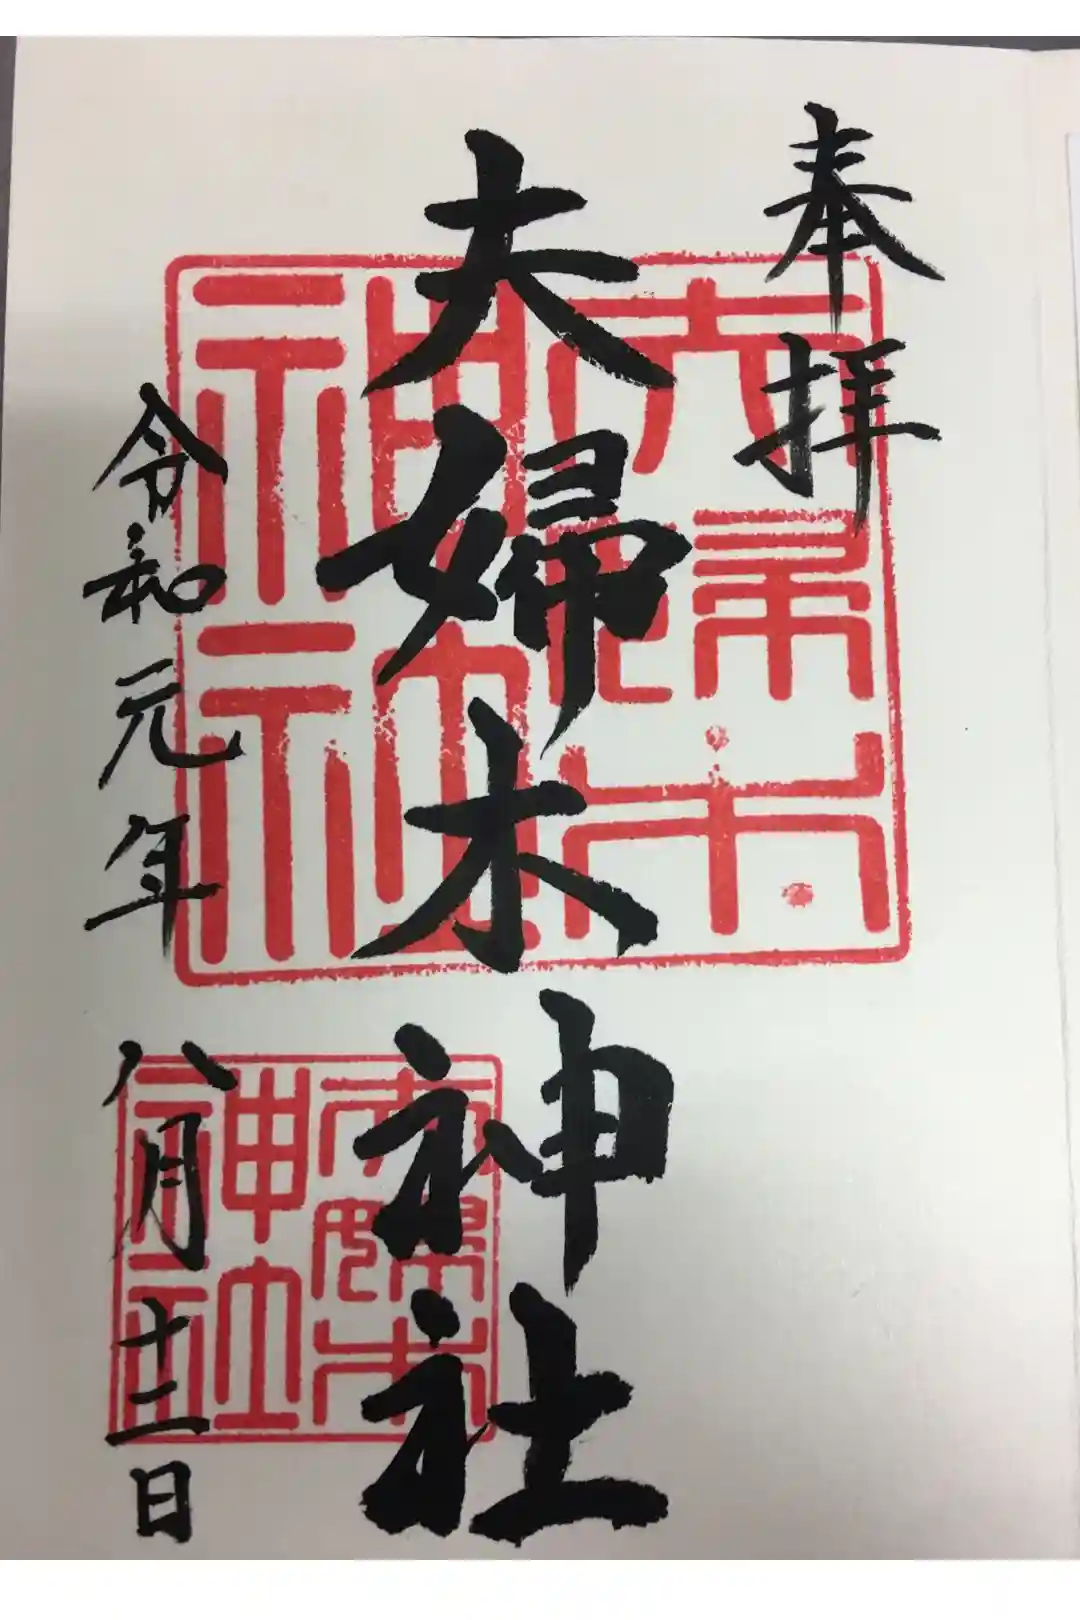 奉拝
夫婦木神社
令和元年 八月十二日
夫婦木
神社
夫婦木
神社